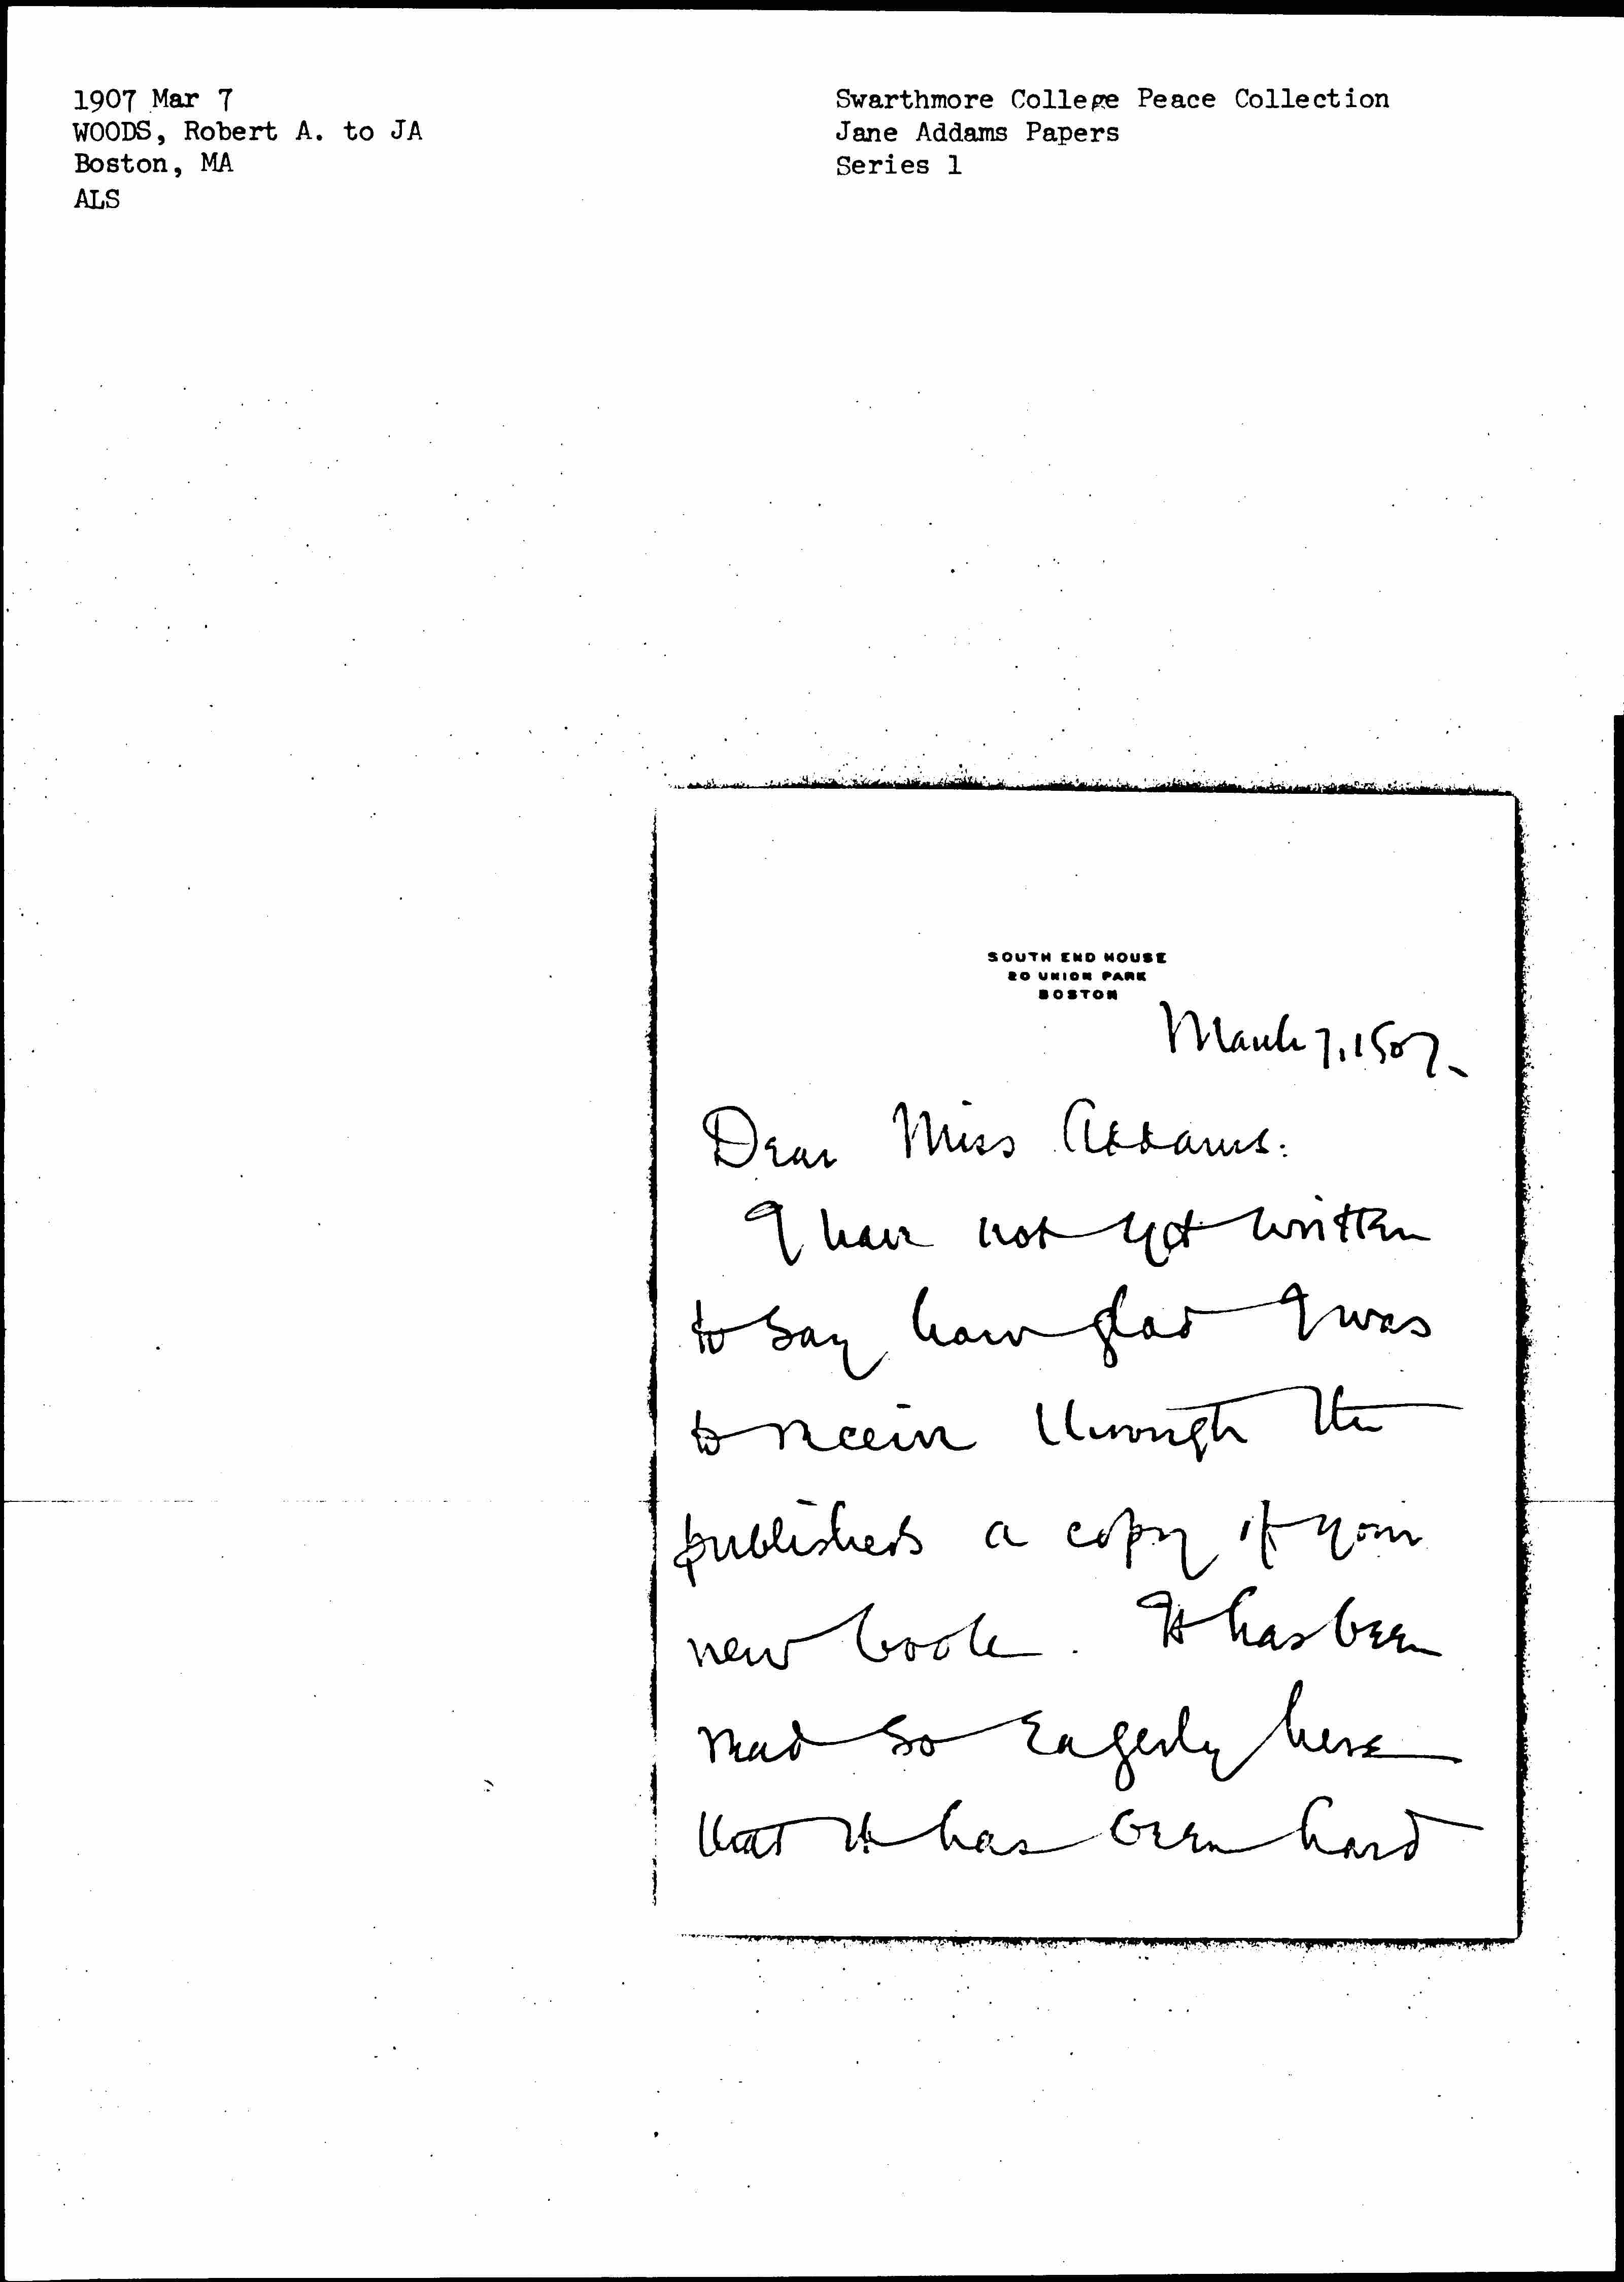 1907 Mar 7
WOODS, Robert A. to JA
Boston, MA
ALS
Swarthmore College Peace Collection
Jane Addams Papers
Series 1
SOUTH END HOUSE
20 UNION PARK
BOSTON
March 7, 1907.
Dear Miss Addams:
I have not yet written
to say how glad I was
to receive through the
publishers a copy of your
new book. It has been
read so eagerly here
that it has been hard